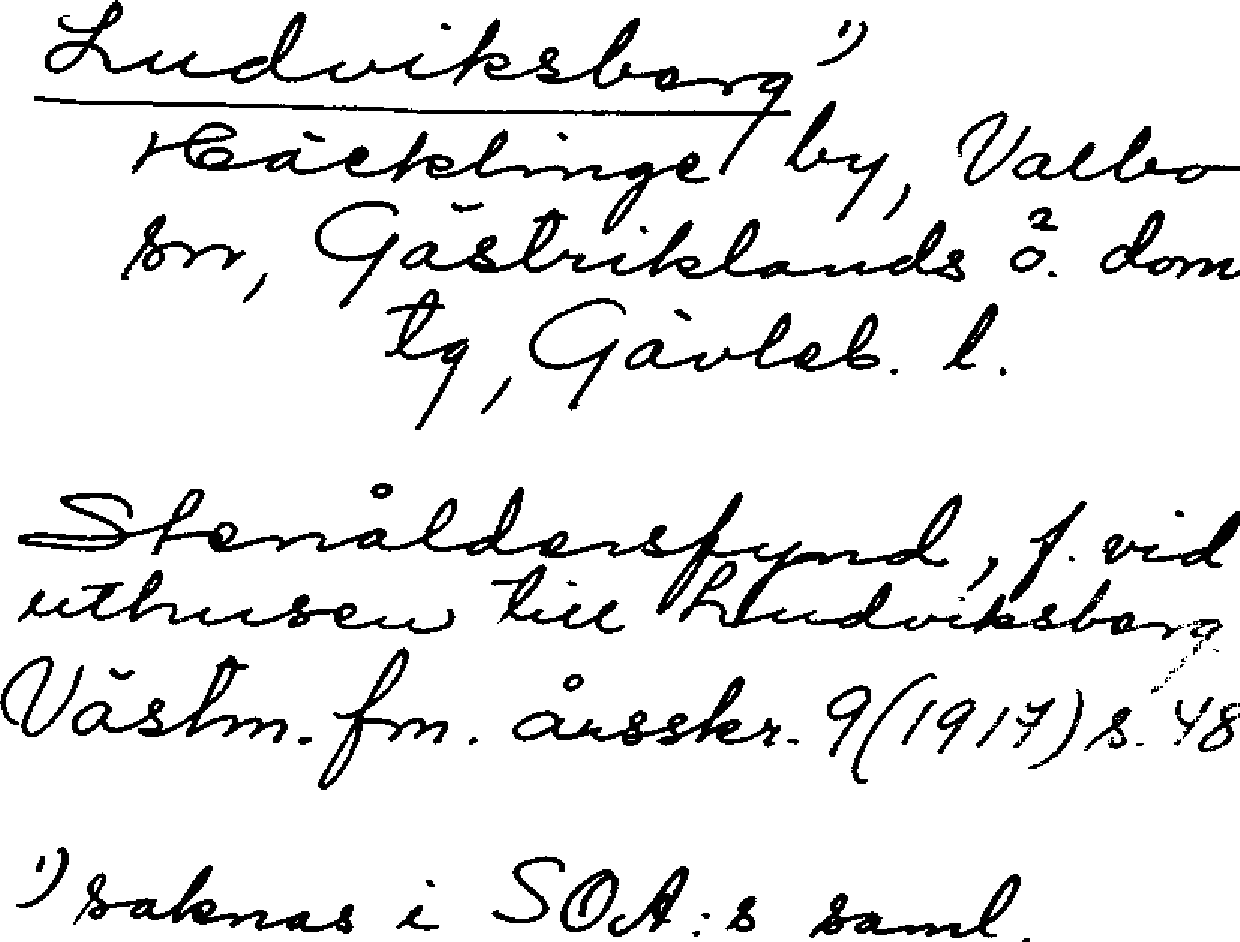 Ludviksborg ¹)
Häcklinge by, Valbo
sn, Gästriklands ö. dom
tg, Gävleb. l.
Stenåldersfynd, f. vid
uthusen till Ludviksborg
Västm. fm. årsskr. 9(1917) s. 48
¹) saknas i SOA:s saml.